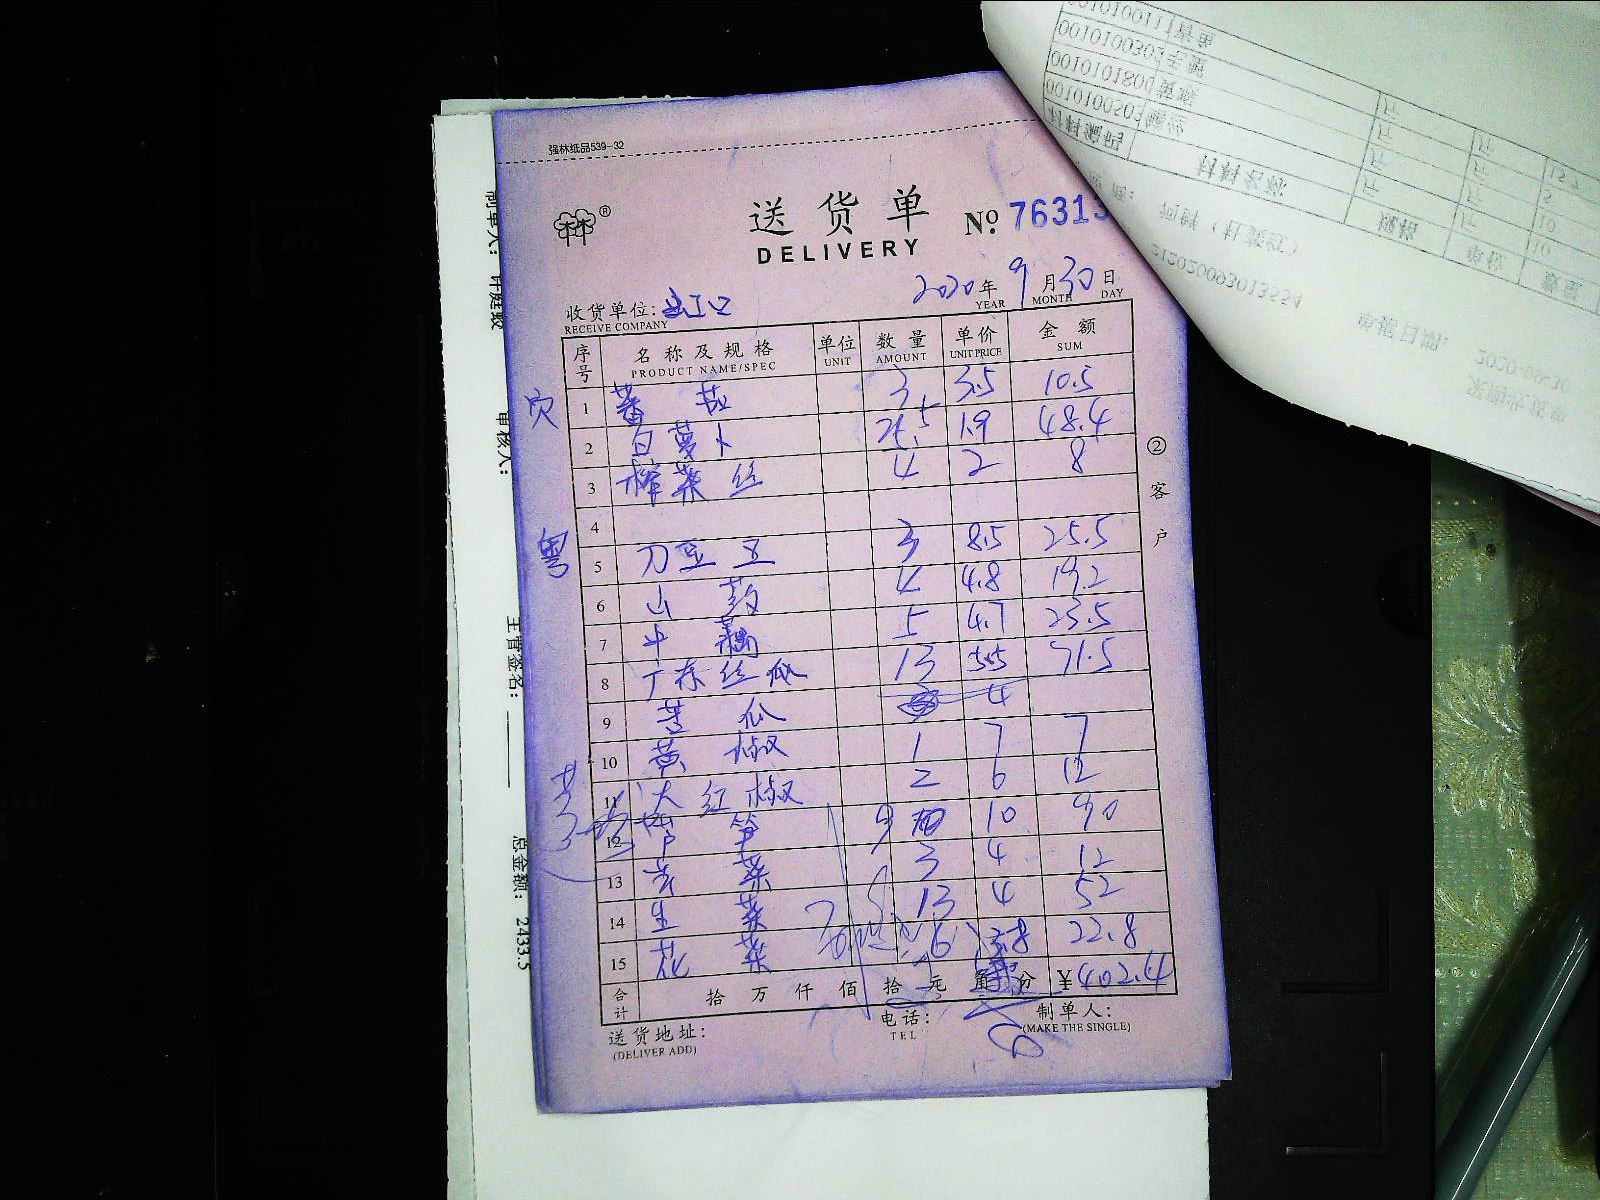 强林纸品539-32
送货单
DELIVERY
No. 76313
2020年9月30日
YEAR MONTH DAY
收货单位: 虹口
RECEIVE COMPANY
序号 名称及规格 单位 数量 单价 金额
PRODUCT NAME/SPEC UNIT AMOUNT UNIT PRICE SUM
1 蕃茄 3 3.5 10.5
2 白萝卜 25.5 1.9 48.4
3 榨菜丝 4 2 8
4
5 刀豆 3 8.5 25.5
6 山药 4 4.8 19.2
7 中藕 5 4.7 23.5
8 广东丝瓜 13 5.5 71.5
9 苦瓜 4
10 黄椒 1 7 7
11 大红椒 2 6 12
12 芦笋 9 10 90
13 菜 3 4 12
14 生菜 13 4 52
15 花菜 6 3.8 22.8
合计 拾万仟佰拾元角分 ¥402.4
②客户
粤
送货地址:
(DELIVER ADD)
电话:
TEL
制单人:
(MAKE THE SINGLE)
制单人: 许庭数
审核人:
主管签名:
总金额: 2433.5
0010100111 青鱼
0010100302
0010101800
0010100503
材料编码 材料名称 规格 单位 数量
斤 斤 15.2
斤 斤 5
斤 斤 10
斤 斤 10
2120200930135SA
单据日期: 2020-09-30